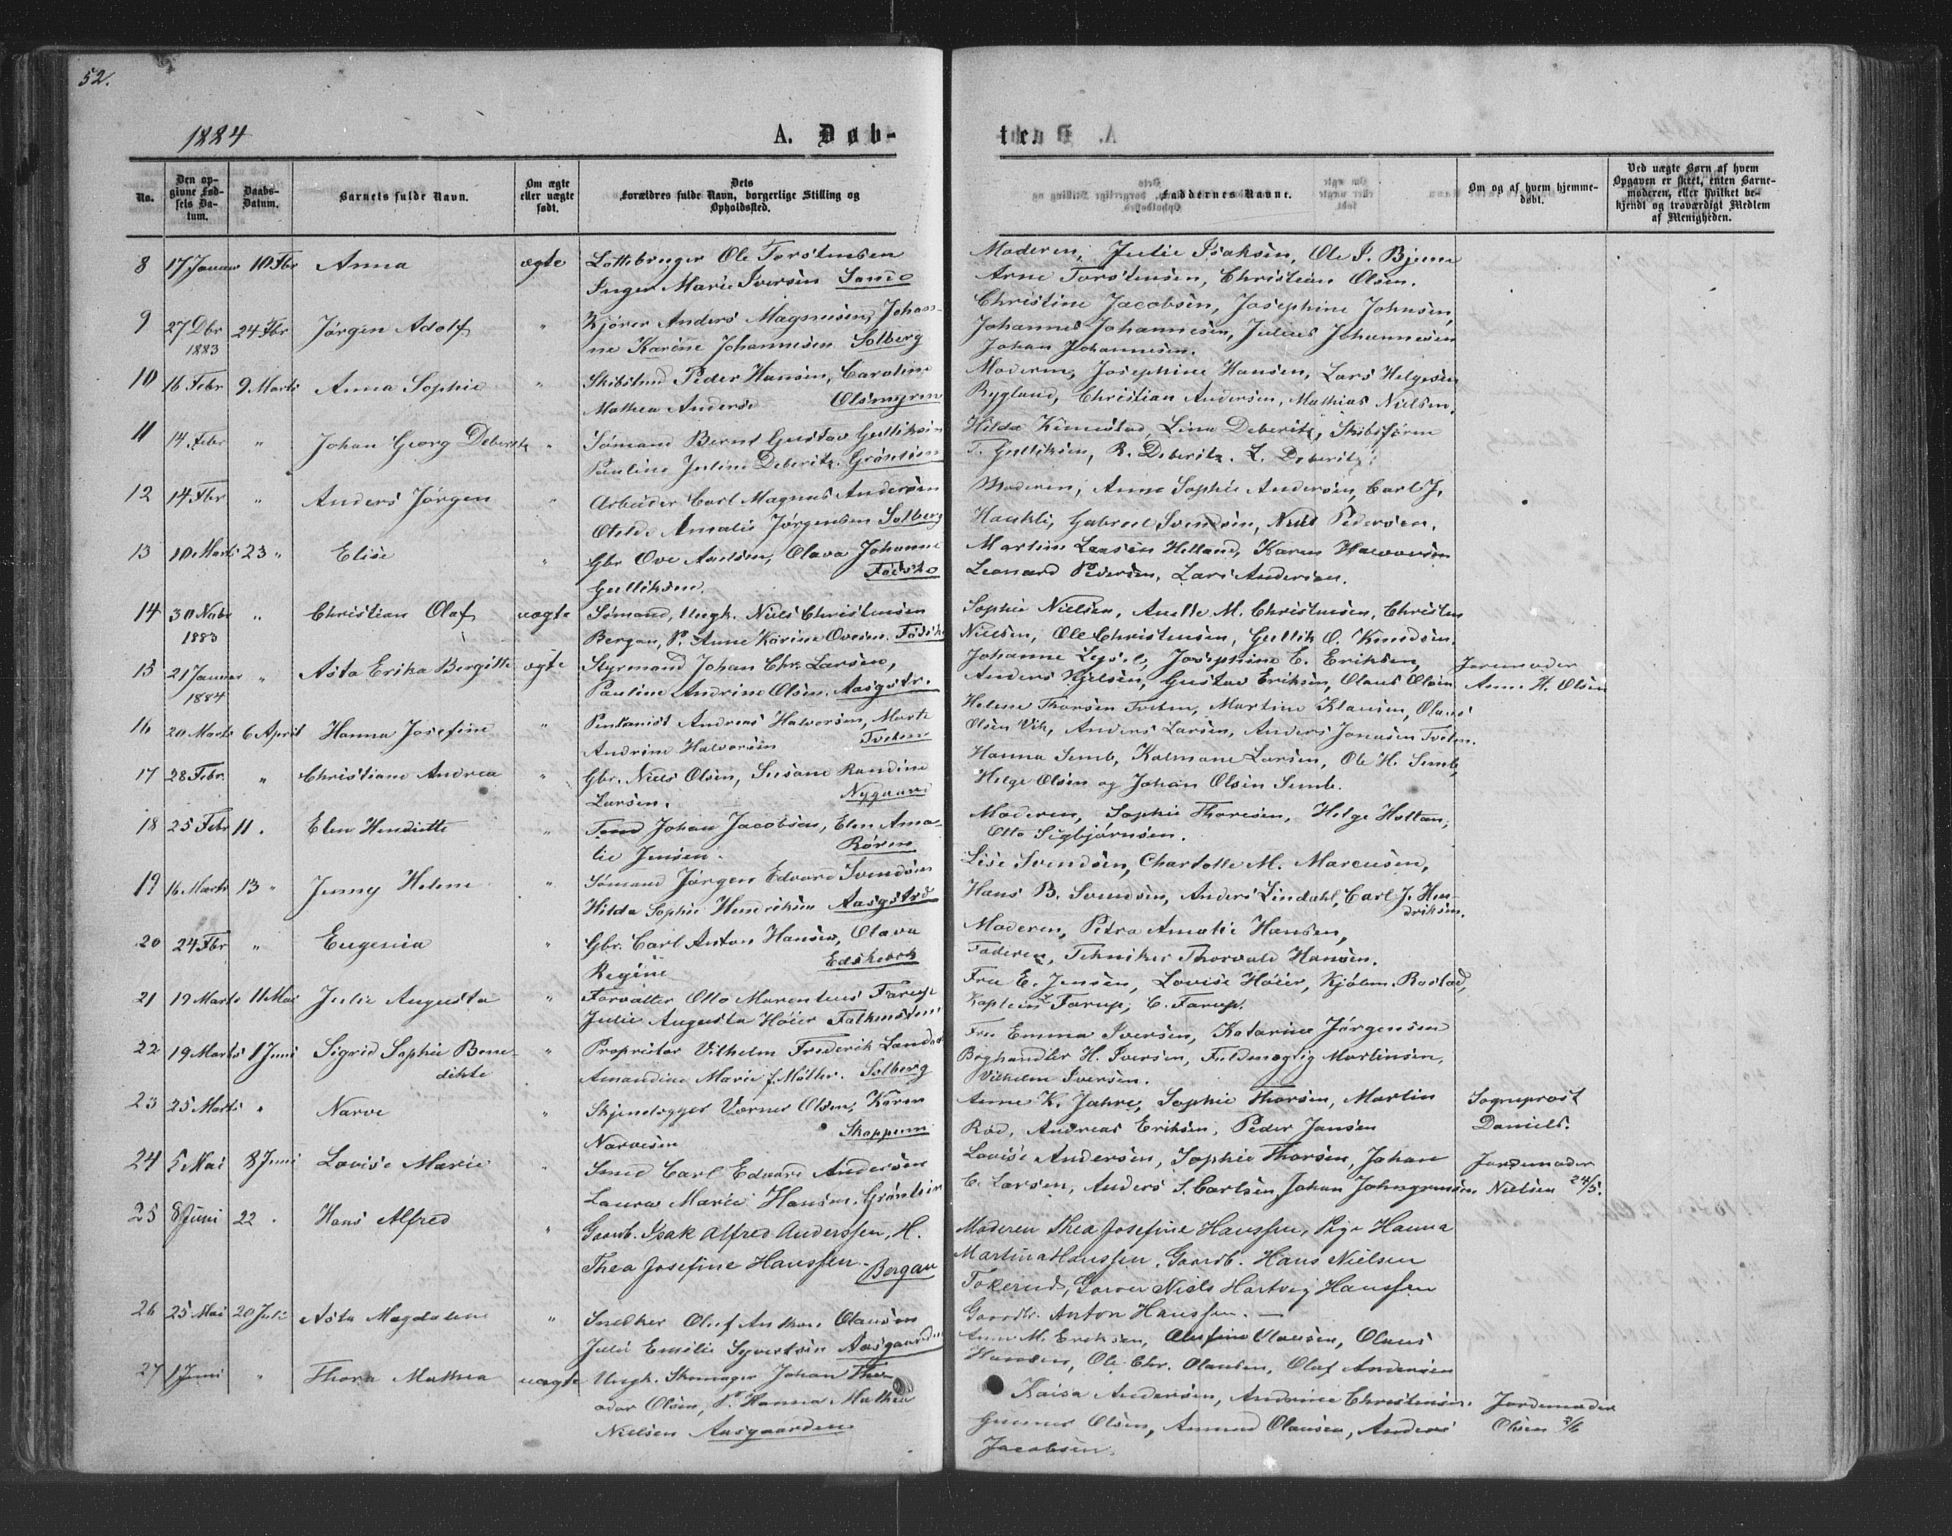 52.
1884
A. Døb-
No.
Den op-
givne Fød-
sels Da-
tum.
Daabs-
Datum.
Barnets fulde Navn.
Om ægte
eller uægte
født.
Dets
Forældres fulde Navn, borgerlige Stilling og
Opholdssted.
8 17 Januar 10 Fbr Anna ægte Ole Torstensen
Inger Marie Iversen Sande
9 27 Dbr 24 Fbr Jørgen Adolf " Kjører Anders Magnusen, Johan-
1883 ne Karine Johannesen Solberg
10 16 Febr 9 Marts Anna Sophie " Peder Hansen, Caroline
Mathea Anders
11 14 Febr " Johan Georg Deberitz " Sømand Bernt Gustav Gulliksen
Pauline Juline Deberitz.
12 14 Fbr " Anders Jørgen " Arbeider Carl Magnus Andersen
Amalie Jørgensen Solberg
13 10 Marts 23 " Elise " Gbr Ove Axelsen, Olava Johanne
Gulliksen.
14 30 Nobr " Christian Olaf uægte Sømand, Ungk. Niels Christensen
1883 Bergan, P. Anne Karine Ovesen.
15 21 Januar " Asta Erika Bergitte ægte Styrmand Johan Chr. Larsen,
1884 Pauline Andrine Olsen. Aasgstr.
16 20 Marts 6 April Hanna Josefine " Andreas Halvorsen, Marte
Andrine Halvorsen Tveten
17 28 Febr. " Christiane Andrea " Gbr. Niels Olsen, Susane Randine
Larsen. Nygaard
18 25 Febr 11. Elen Henriette " Johan Jacobsen, Elen Ama-
lie Jensen. Røren
19 16 Marts 13 " Jenny Helene " Sømand Jørgen Edvard Svendsen
Hilda Sophie Hendriksen Aasgstrd
20 24 Fbr " Eugenia " Gbr. Carl Anton Hansen, Olava
Regine
21 19 Marts 11 Mai Julie Augusta " Forvalter Otto Marentius Farup
Julie Augusta Høier Falkensten
22 19 Marts 1 Juni Sigrid Sophie Bene- " Proprietær Vilhelm Frederik
dikte Amandine Marie f. Møller. Solberg
23 25 Marts " Narve " Værner Olsen, Karen
Narvesen Skoppum
24 5 Mai 8 Juni Lovise Marie " Smed Carl Edvard Andersen
Laura Marie Hansen.
25 8 Juni 22 " Hans Alfred " Gaardb. Isak Alfred Anderssen, H.
Thea Josefine Hanssen. Bergan
26 25 Mai 20 Juli Asta Magdalene " Snedker Oluf Anton Olausen
Julie Emilie Syvertsen Aasgaarden
27 1 Juni " Thora Mathea uægte Ungk. Skomager Johan The-
odor Olsen, P. Hanna Mathea
Nielsen Aasgaarden
A. Døb-
te.
Faddernes Navne.
Om og af hvem hjemme-
døbt.
Ved uægte Børn af hvem
Opgaven er skeet, enten Barne-
moderen, eller hvilket be-
kjendt og troværdigt Medlem
af Menigheden.
Moderen, Julie Isaksen, Ole I. Bjune
Arne Torstensen, Christian Olsen.
Christine Jacobsen, Josephine Johnsen,
Johannes Johannesen, Julius Johannesen
Johan Johannesen.
Moderen, Josephine Hansen, Lars Helgesen
Rygland, Christian Andersen, Mathias Nielsen.
Hilda Lina Deberitz, Skibsfører
T. Gulliksen, R. Deberitz. L. Deberitz.
Moderen, Anne Sophie Andersen, Carl J.
Haukli, Gabriel Svendsen, Niels Pedersen.
Martine Larsen Helland, Karen Halvorsen
Leonard Pedersen, Lars Andersen.
Sophie Nielsen, Anette M. Christensen, Christen
Nielsen, Ole Christensen, Gullik O. Knudsen.
Johanne Josephine E. Eriksen, Jordemoder
Anders Gustav Eriksen, Olaus Olsen Anne H. Olsen
Helene Thorsen Tveten, Martine Klausen, Olaus
Olsen Vik, Anders Larsen, Anders Jonasen Tveten.
Hanna Semb, Kalmane Larsen, Ole H. Semb,
Helge Olsen og Johan Olsen Semb.
Moderen, Sophie Thoresen, Helge Holtan,
Otto Sigbjørnsen.
Lise Svendsen, Charlotte M. Marcusen,
Hans B. Svendsen, Anders Lindahl, Carl J. Hen-
driksen.
Moderen, Petra Amalie Hansen,
Faderen, Tekniker Thorvald Hansen.
Fru E. Jensen, Lovise Høier, Kjøbm. Rostad,
Kaptein Farup, C. Farup.
Fru Emma Iversen, Katarina Jørgensen
Boghandler H. Iversen, Fuldmægtig Martinsen,
Vilhelm Iversen.
Anne K. Jahre, Sophie Thorsen, Martin Sogneprost
Rød, Andreas Eriksen, Peder Jansen Daniels.
Lovise Andersen, Sophie Thorsen, Johan Jordemoder
C. Larsen, Anders S. Carlsen, Johan Nielsen 24/5.
Moderen Thea Josefine Hanssen, Pige Hanna
Martina Hanssen, Gaardb. Hans Nielsen
Niels Hartvig Hanssen
Gaardbr. Anton Hanssen. —
Anne M. Eriksen, Olufine Olausen, Olaus
Hansen, Ole Chr. Olausen, Olaf Andersen
Kaisa Andersen, Andrine Christensen. Jordemoder
Gunner Olsen, Amund Olausen, Anders Olsen
Jacobsen.